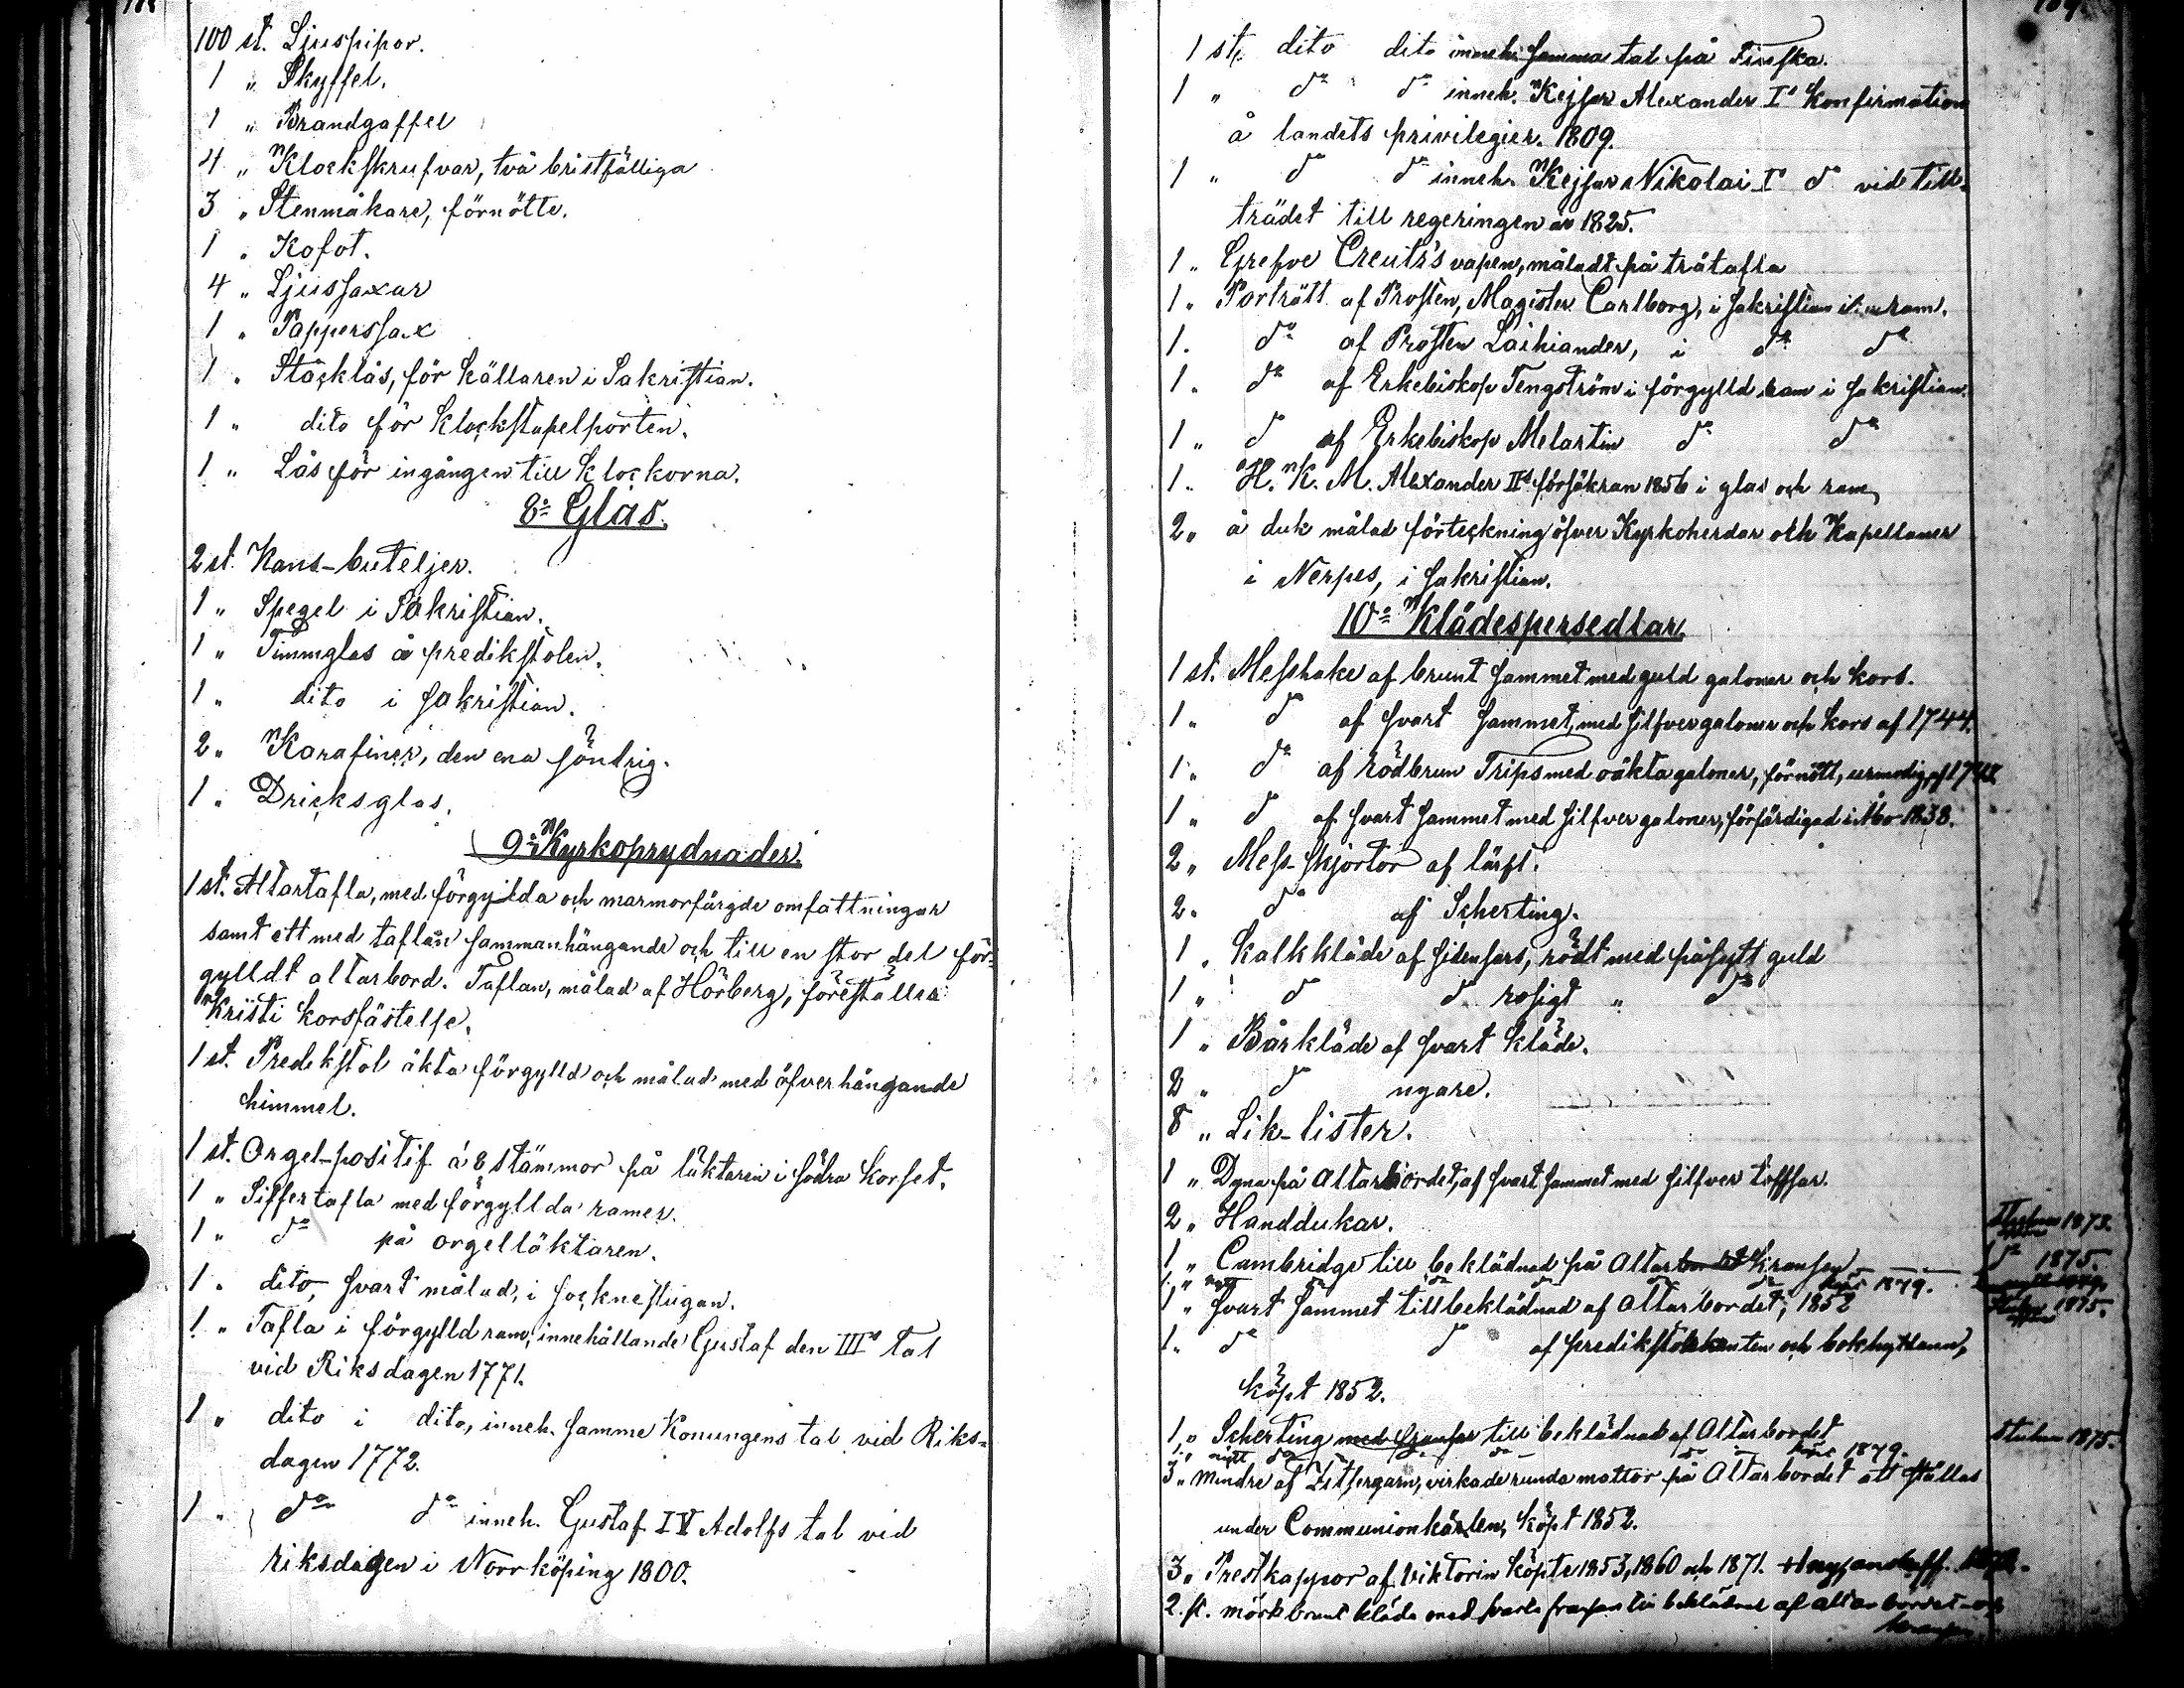 100 st. Ljuspipor.
1 " Skyffel.
1 " Brandgaffel
4 " Klockskrufvar, två bristfälliga
3 " Stenmåkare, förnötte.
1 " Kofot.
4 " Ljussaxar
1 " Papperssax
1 " Stocklås, för källaren i Sakristian.
1 " dito för klockstapelporten.
1 " Lås för ingången till klockorna.
8:= Glas.
2 st. Kans-buteljer.
1 " Spegel i Sakristian.
1 " Timmglas å predikstolen.
1 " dito i sakristian.
2 " Karafiner, den ena söndrig.
1 " Dricksglas.
9:= Kyrkoprydnader.
1 st. Altartafla, med förgyllda och marmorfärgde omfattningar
samt ett med taflan sammanhängande och till en stor del för-
gylldt altarbord. Taflan, målad af Hörberg, föreställer
Kristi korsfästelse.
1 st. Predikstol äkta förgylld och målad med öfverhängande
himmel.
1 st. Orgel-positif á 8 stämmor på läktaren i södra korset.
1 " Siffertafla med förgyllda ramer.
1 " do på orgelläktaren.
1 " dito, svart målad, i socknestugan.
1 " Tafla i förgylld ram, innehållande Gustaf den III:s tal
vid Riksdagen 1771.
1 " dito i dito, inneh. samme Konungens tal vid Riks-
dagen 1772.
1 " do do inneh. Gustaf IV Adolfs tal vid
riksdagen i Norrköping 1800.
1 st. dito dito inneh. samma tal på Finska.
1 " do do inneh. Kejsar Alexander I:s Konfirmation
å landets privilegier. 1809.
1 " do do inneh. Kejsar Nikolai I:s do vid till-
trädet till regeringen år 1825.
1 " Grefve Creutz's vapen, måladt på trätafla
1 " Porträtt af Prosten, Magister Carlborg, i sakristian i ram.
1 " do af Prosten Laihiander, i do do
1 " do af Erkebiskop Tengström i förgylld ram i sakristian.
1 " do af Erkebiskop Melartin do do
1 " H. K. M. Alexander II:s försäkran 1856 i glas och ram
2 " å duk målad förteckning öfver Kyrkoherdar och Kapellaner
i Nerpes, i sakristian.
10:= Klädespersedlar.
1 st. Messhake af brunt sammet med guld galoner och kors.
1 " do af svart sammet, med silfvergaloner och kors af 1744.
1 " do af rödbrun Trips med oäkta galoner, förnött, urmodig, af
1 " do af svart sammet med silfvergaloner, förfärdigad i Åbo 1838.
2 " Mess-skjortor af lärft.
2 " do af Scherting.
1 " Kalkkläde af sidensars, rödt med påsytt guld
1 " do do rosigt " do
1 " Bårkläde af svart kläde.
2 " do nyare.
8 " Lik-lister.
1 " Dyna på Altarbordet, af svart sammet med silfver toffsar.
2 " Handdukar.
1 " Cambridge till beklädnad på Altar kransen
1 " nytt do do do do köpt 1879.
1 " Svart sammet till beklädnad af Altarbordet, 1852
1 " do do af predikstolskanten och bokhyllan,
köpt 1852.
1 " Scherting med fransar till beklädnad af Altarbordet
1 " nytt do do do do köpt 1879.
3 " Mindre af Zefirgarn, virkade runda mattor på Altarbordet att ställas
under Communionkärlen, köpt 1852.
3 " Prestkappor af Viktorin köpte 1853, 1860 och 1871.
2 st. mörkbrunt kläde med svarta fransar till beklädnad af altarbordet och
1873.
do 1875.
1875.
1875.